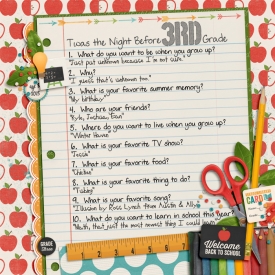 Twas the Night Before 3RD Grade
1. What do you want to be when you grow up?
"Just put unknown because I'm not sure."
2. Why?
"I guess that's unknown too."
3. What is your favorite summer memory?
"My birthday"
4. Who are your friends?
"Kyle, Joshua, Evan"
5. Where do you want to live when you grow up?
"Winter Haven"
6. What is your favorite TV show?
"Jessie"
7. What is your favorite food?
"Chicken"
8. What is your favorite thing to do?
9. What is your favorite song?
"Illusion by Ross Lynch from Austin & Ally"
10. What do you want to learn in school this year?
"Math, that's just the most newest thing I could
GRADE
three
CARD
Welcome
BACK TO SCHOOL!